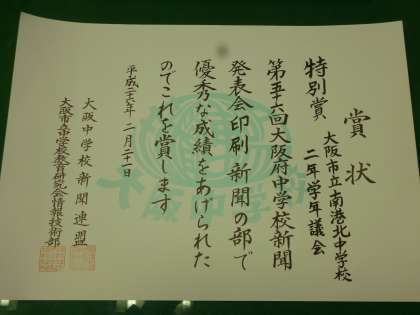 賞状
大阪市立南港北中学校
特別賞　二年学年議会
第五十六回大阪府中学校新聞
発表会印刷新聞の部で
優秀な成績をあげられた
のでこれを賞します
平成二十六年二月二十二日
大阪中学校新聞連盟
大阪市立中学校教育研究会情報技術部